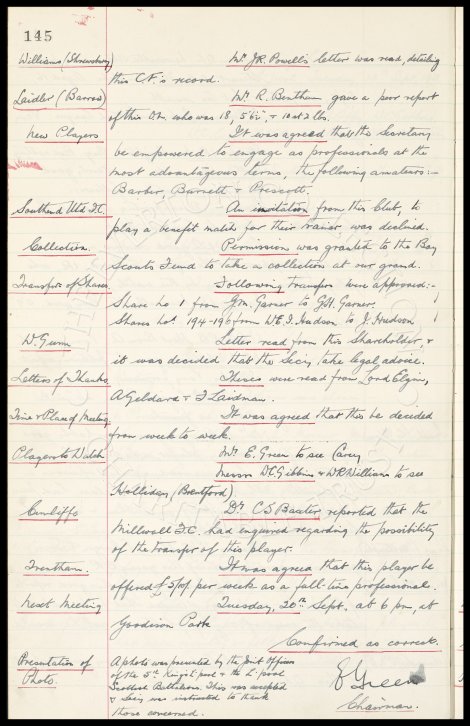 145
Williams (Shrewsbury) Mr. J.R. Powell's letter was read, detailing
this C.F's record.
Laidler (Barrow) Mr R. Bentham gave a poor report
of this who was 18, 5' 6½", & 10 st 2 lbs.
New Players It was agreed that the Secretary
be empowered to engage as professionals at the
most advantageous terms, the following amateurs:-
Barber, Burnett & Prescott.
Southend Utd F.C. An invitation from this Club, to
play a benefit match for their trainer, was declined.
Collection. Permission was granted to the Boy
Scouts Fund to take a collection at our ground.
Transfer of Shares Following transfers were approved:-
Share No 1 from Jm. Garner to G.H. Garner.
Shares Nos 194-196 from W.E.I. Hudson to J. Hudson
D. Gunn Letter read from this Shareholder, &
it was decided that the Secy take legal advice.
Letters of Thanks. These were read from Lord Elgin,
A Geldard & J Laidman.
Time & Place of Meeting It was agreed that this be decided
from week to week.
Players to Watch Mr. E. Green to see Carey
Messrs D.C. Gibbins & W.R. Williams to see
Holliday (Brentford)
Cunliffe Dr. C.S. Baxter reported that the
Millwall F.C. had enquired regarding the possibility
of the transfer of this player.
Trentham. It was agreed that this player be
offered £5/10/- per week as a full-time professional.
Next Meeting Tuesday, 20th Sept. at 6 pm, at
Goodison Park
Confirmed as correct.
Presentation of A photo was presented by the Joint Officers
Photo. of the 5th King's Lpool & the L'pool
Scottish Battalions. This was accepted
& Secy was instructed to thank
those concerned.
E Green
Chairman.